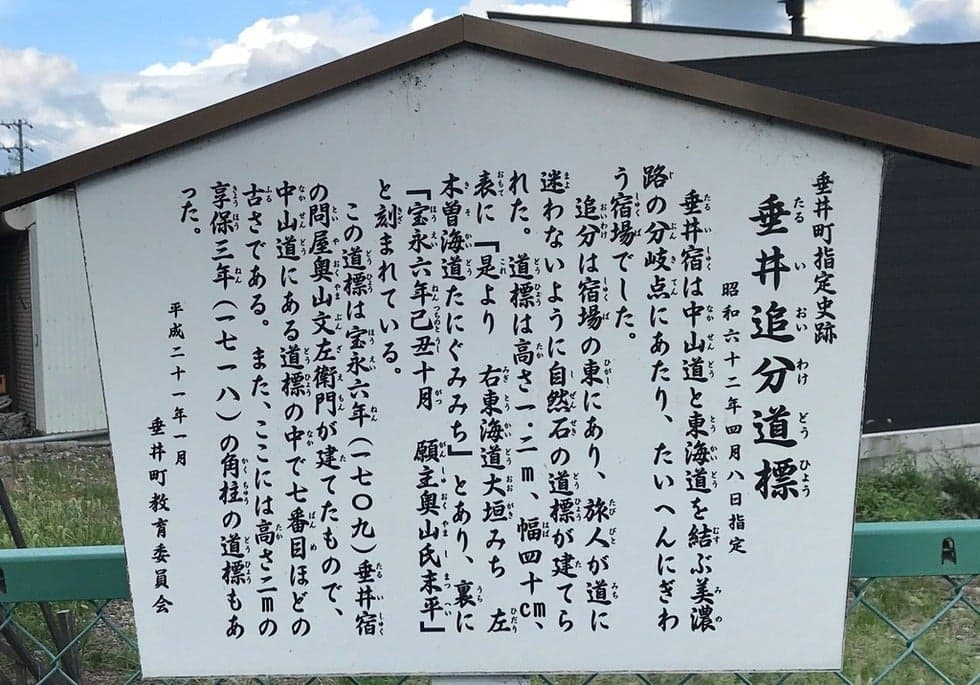 垂井町指定史跡
垂井追分道標
たるいおいわけどうひょう
昭和六十二年四月八日指定
垂井宿は中山道と東海道を結ぶ美濃
路の分岐点にあたり、たいへんにぎわ
う宿場でした。
追分は宿場の東にあり、旅人が道に
迷わないように自然石の道標が建てら
れた。道標は高さ一.二m、幅四十cm、
表に「是より 右東海道大垣みち 左
木曽海道たにぐみみち」とあり、裏に
「宝永六年己丑十月 願主奥山氏末平」
と刻まれている。
この道標は宝永六年(一七〇九)垂井宿
の問屋奥山文左衛門が建てたもので、
中山道にある道標の中で七番目ほどの
古さである。また、ここには高さ二mの
享保三年(一七一八)の角柱の道標もあ
った。
平成二十一年一月
垂井町教育委員会